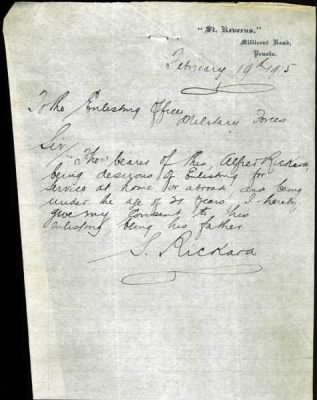 "St. Keverns."
Millicent Road,
Penola.
February 19th 1915
To the Enlisting Officer
Military Forces
Sir/
The bearer of this, Alfred Rickard
being desirous of Enlisting for
Service at home or abroad and being
under the age of 21 years I hereby
give my Consent to his
enlisting, being his father
S. Rickard